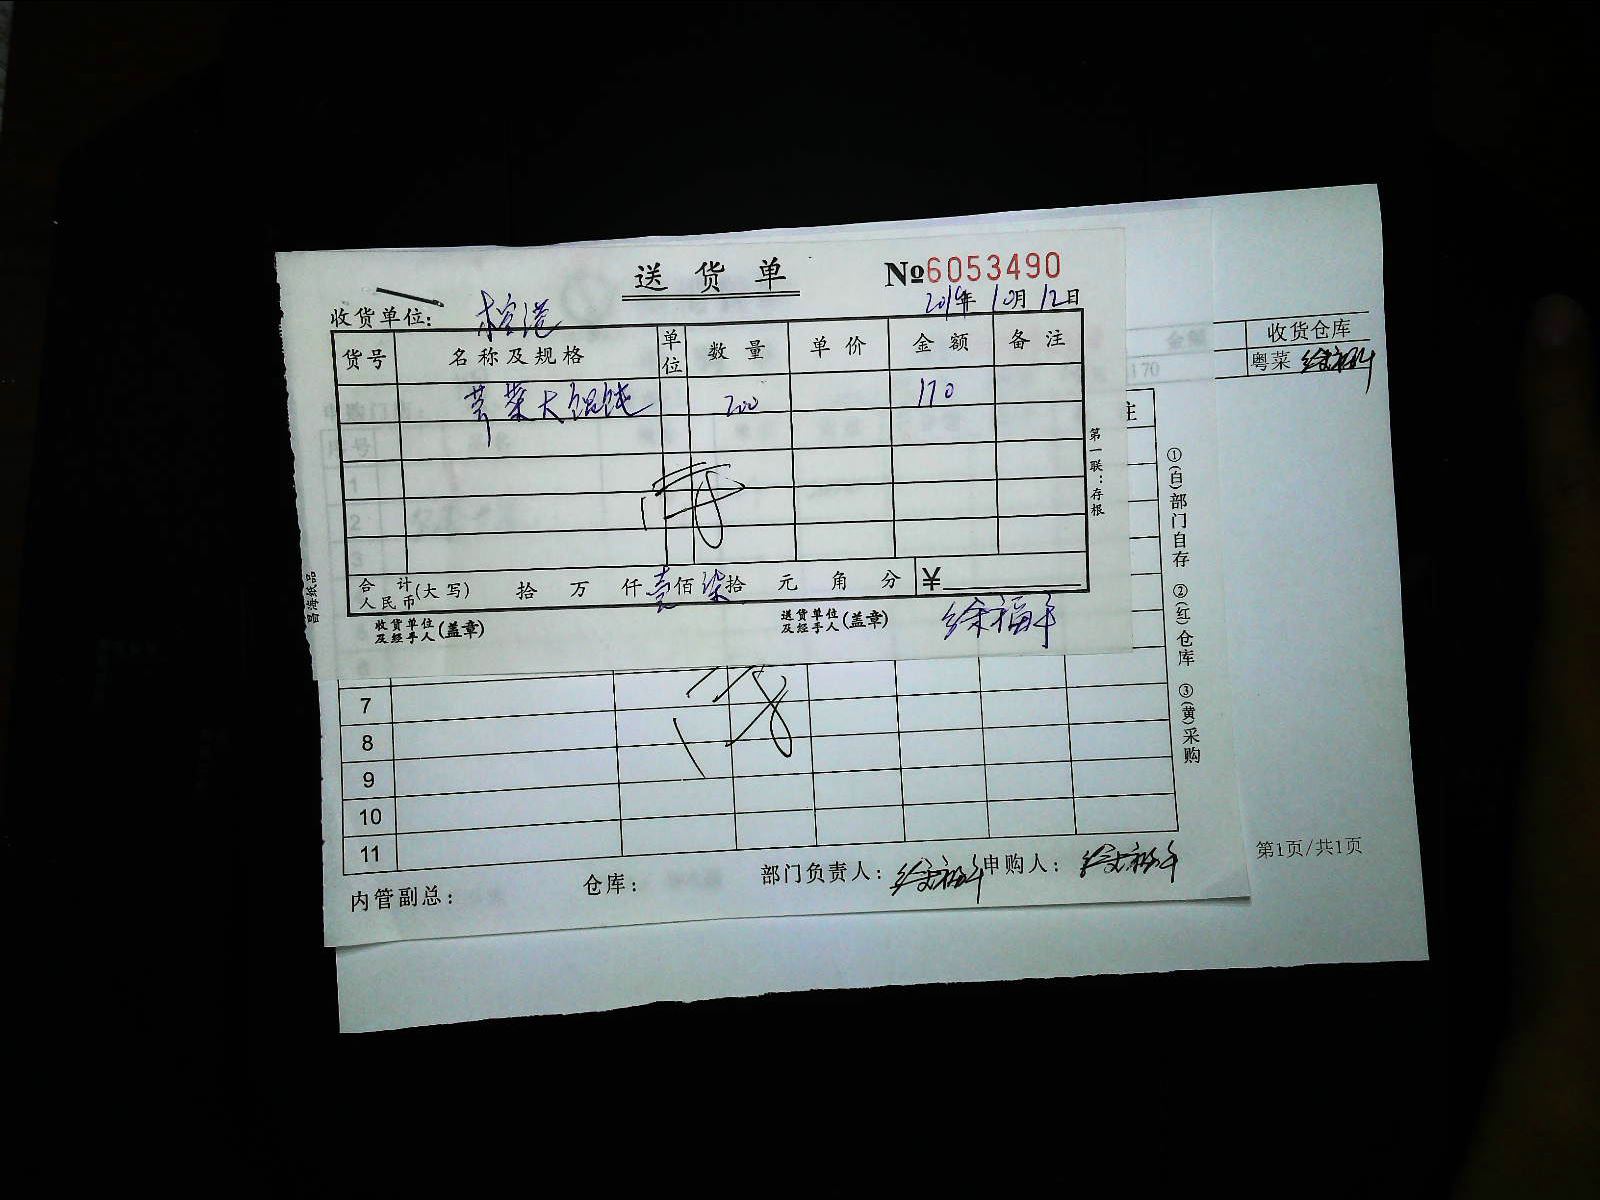 送货单 №6053490
收货单位: 榕港 2019年10月12日
货号 名称及规格 单位 数量 单价 金额 备注
荠菜大馄饨 200 170
第一联:存根
合计人民币(大写) 拾 万 仟壹佰柒拾 元 角 分 ¥
收货单位及经手人(盖章) 送货单位及经手人(盖章) 徐福年
收货仓库
粤菜 徐福年
170
注
①(白)部门自存 ②(红)仓库 ③(黄)采购
7
8
9
10
11
内管副总: 仓库: 部门负责人: 徐福年 申购人: 徐福年
第1页/共1页